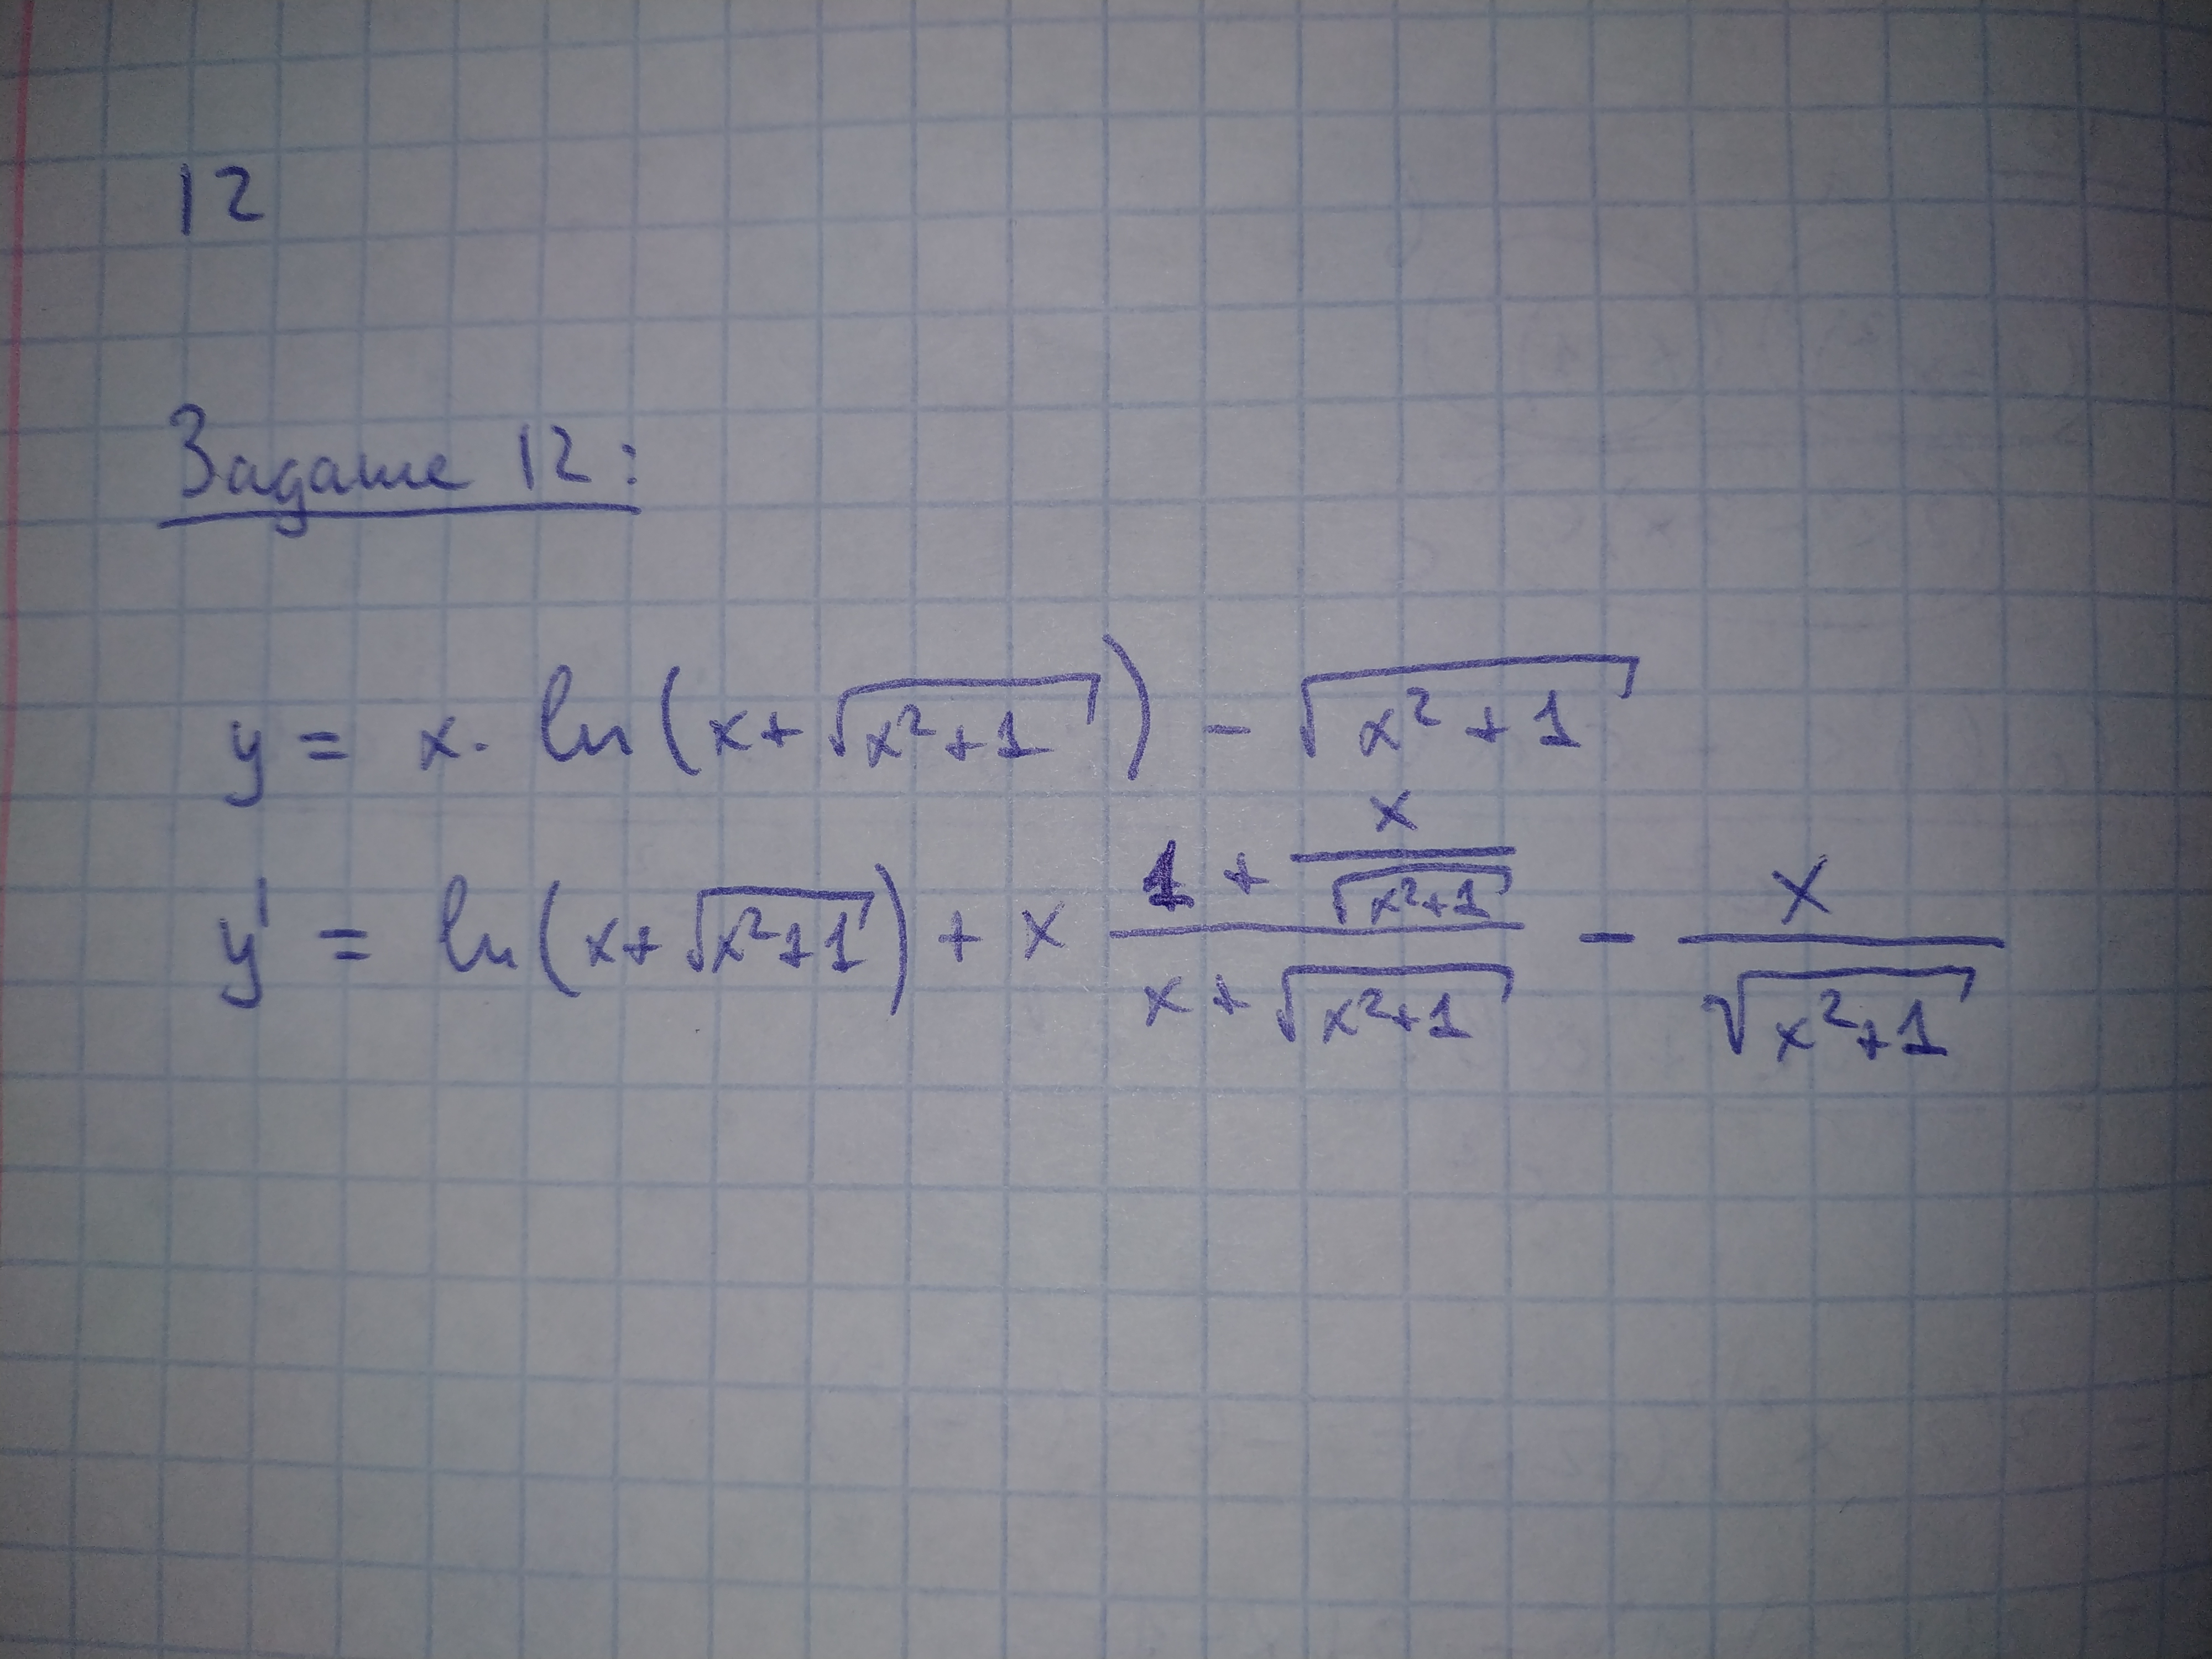 12
Задание 12:
y = x · ln(x+√(x²+1)) - √(x²+1)
y' = ln(x+√(x²+1)) + x (1 + x/√(x²+1))/(x+√(x²+1)) - x/√(x²+1)